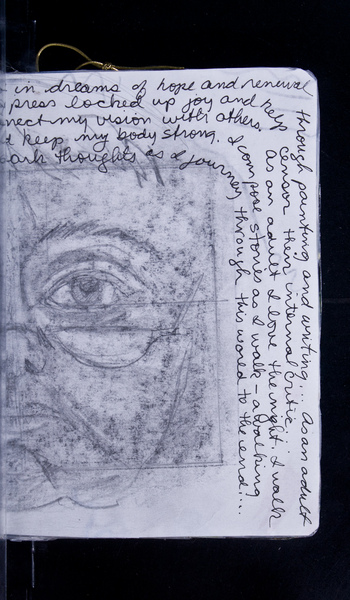 in dreams of hope and renewal through painting and writing... As an adult
press locked up joy and help censor their internal critic.
nnect my vision with others. As an adult I love the night. I walk
keep my body strong. I compose stories as I walk - a walking
ark thoughts as I journey through this world to the end...